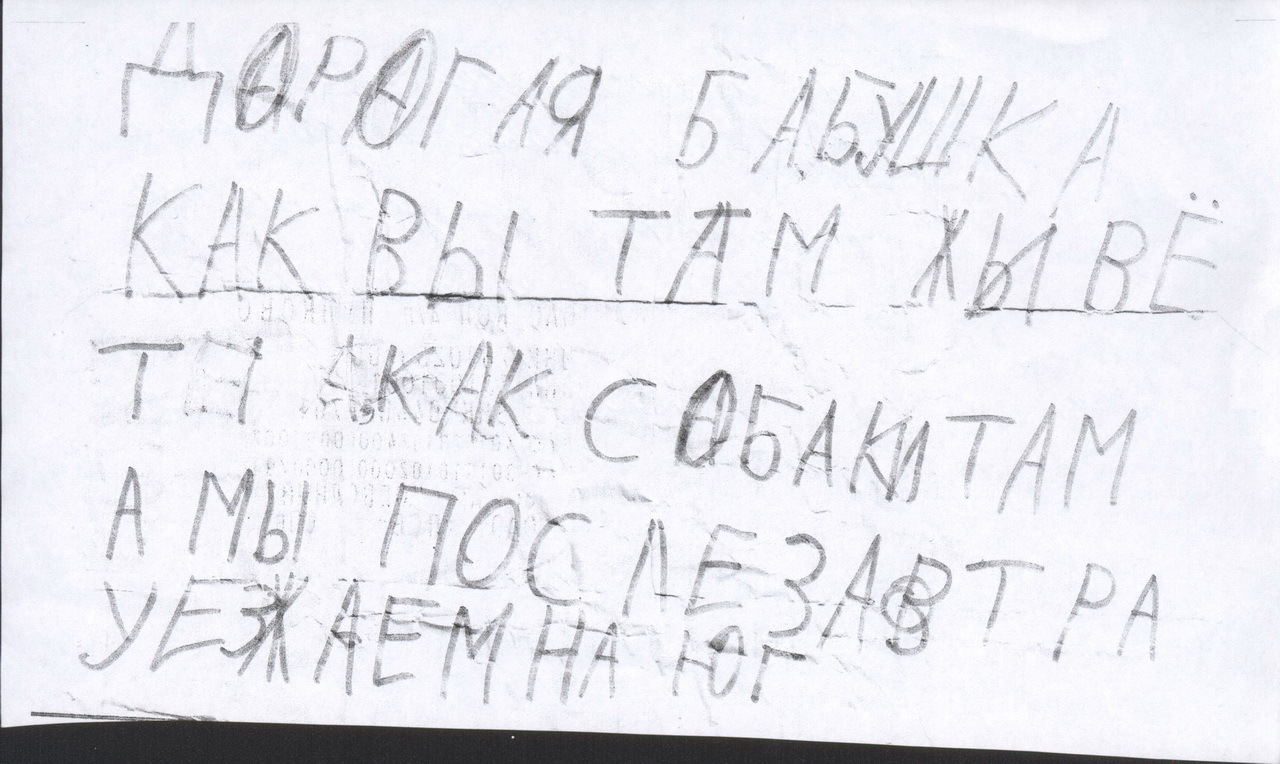 ДОРОГАЯ БАБУШКА
КАК ВЫ ТАМ ЖЫВЁ
ТЕ КАК СОБАКИ ТАМ
А МЫ ПОСЛЕЗАВТРА
УЕЗЖАЕМ НА ЮГ